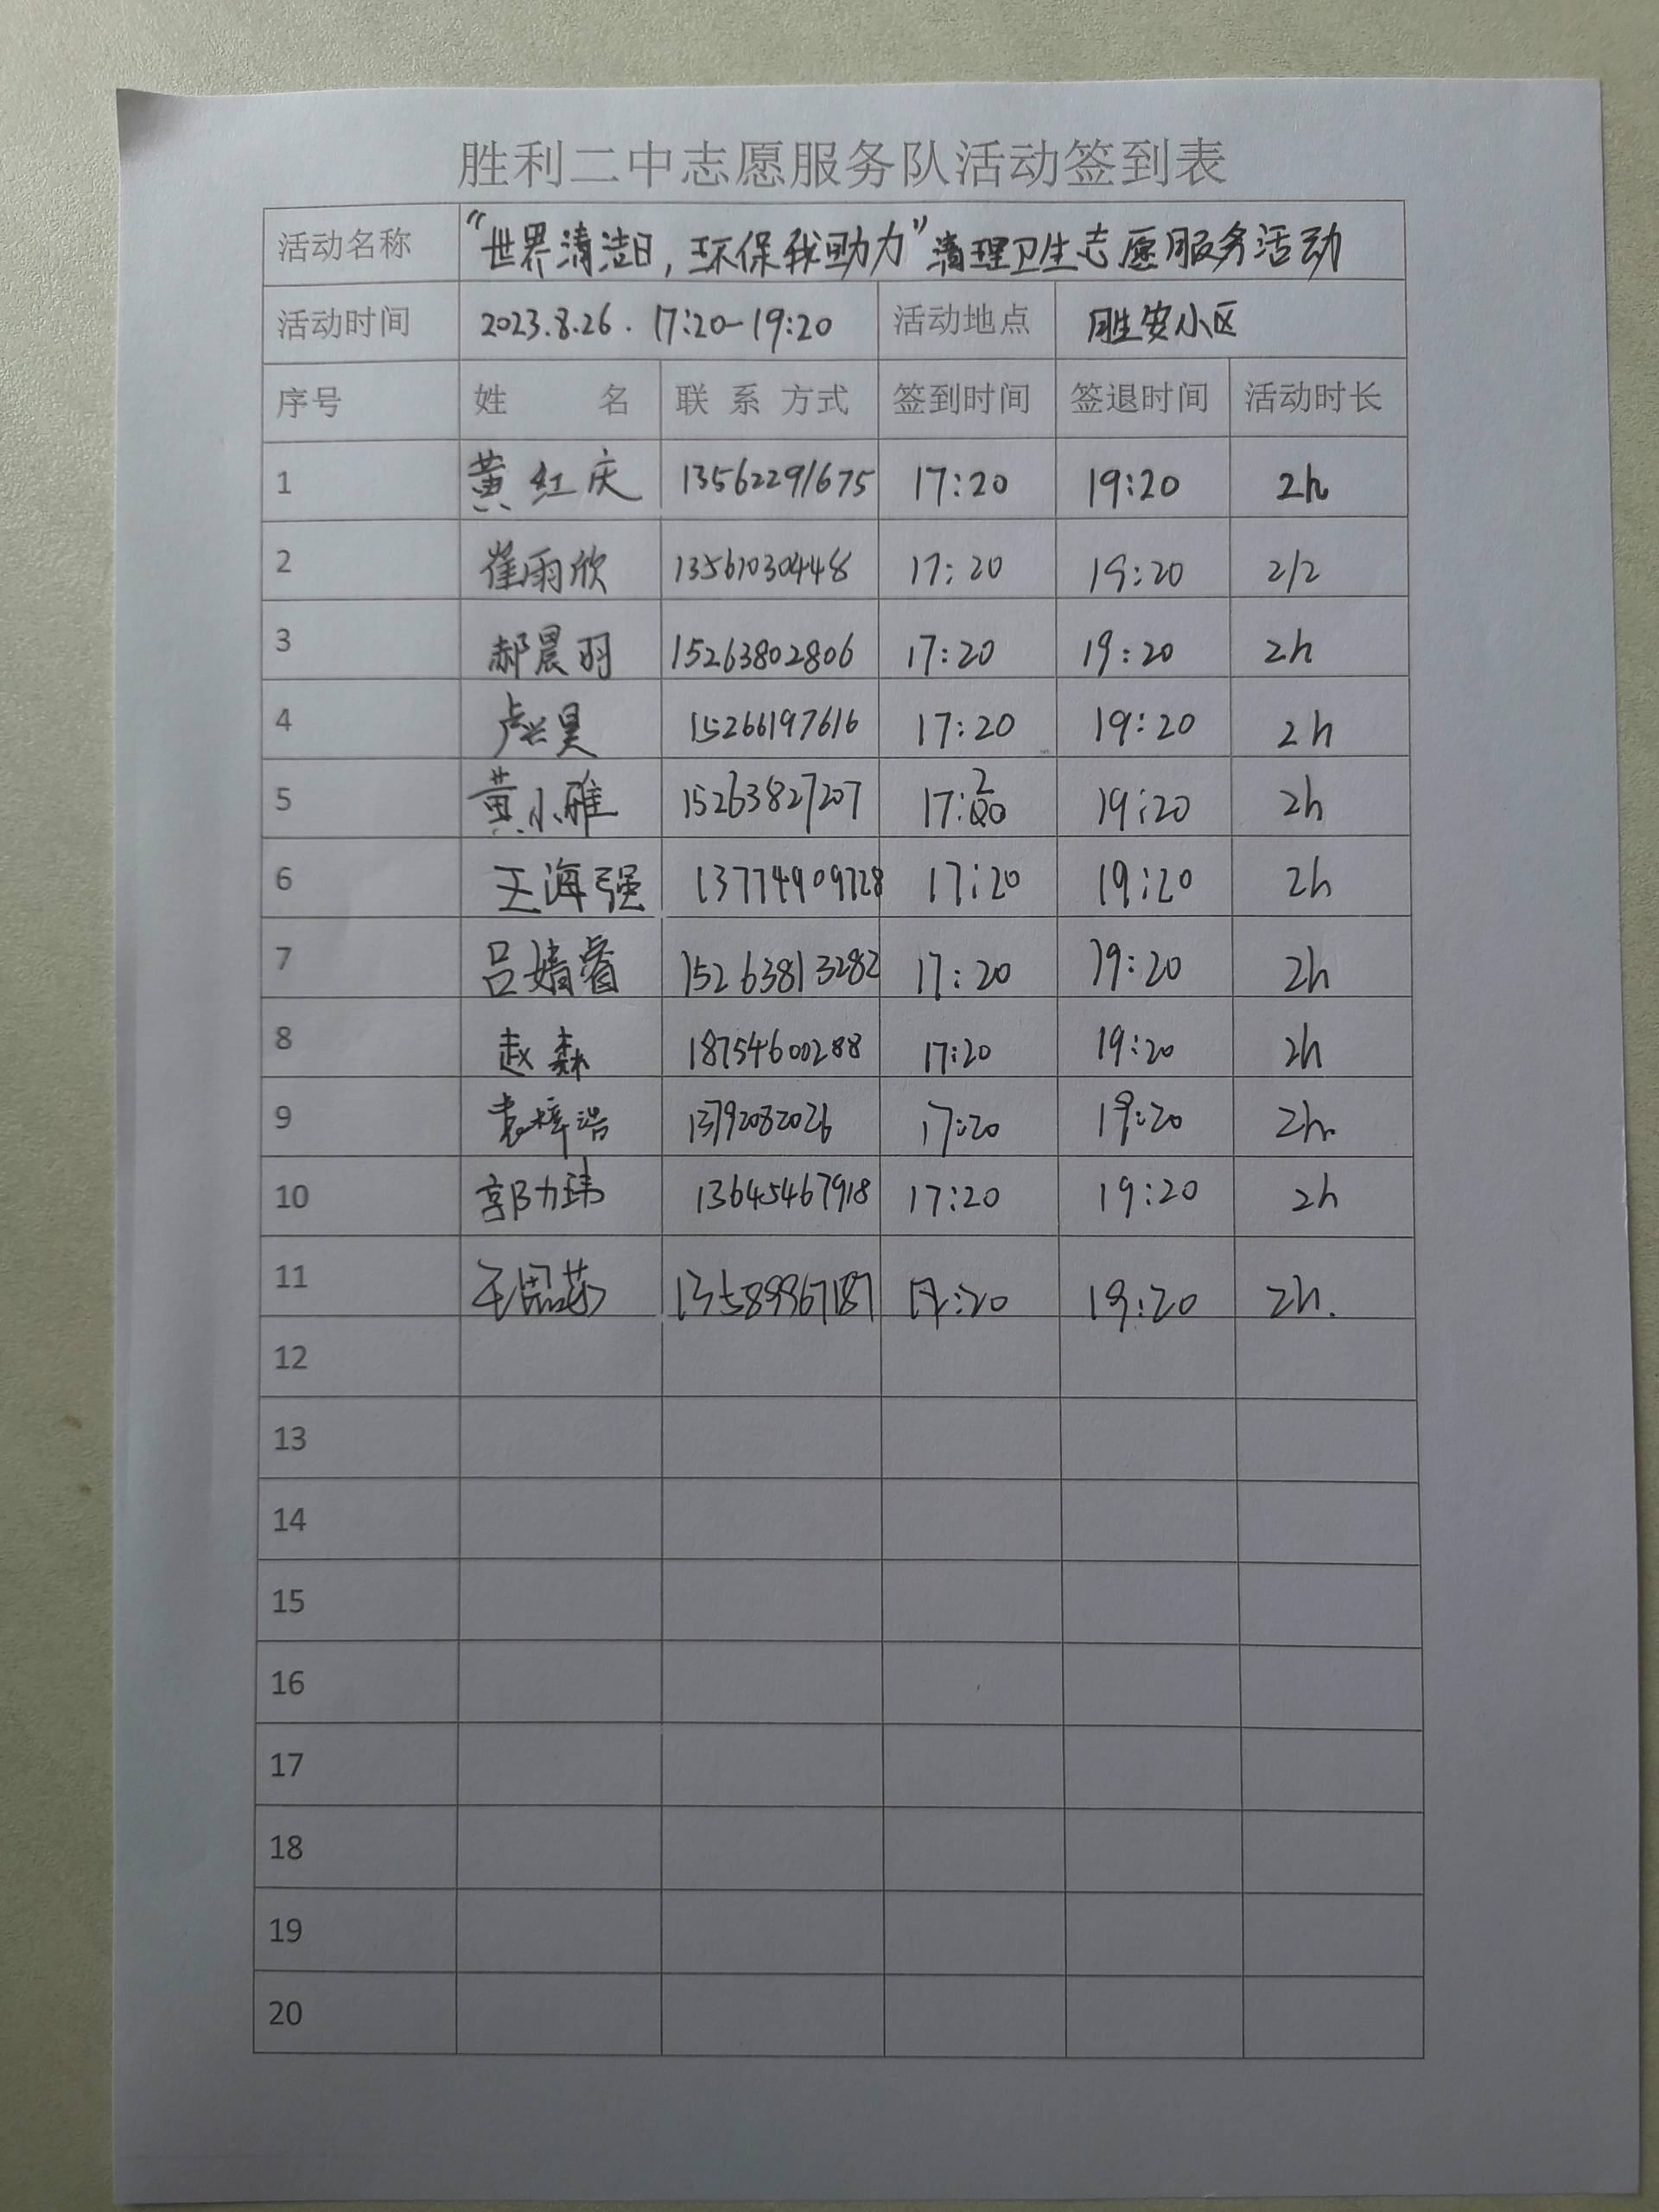 胜利二中志愿服务队活动签到表
活动名称 “世界清洁日，环保我助力”清理卫生志愿服务活动
活动时间 2023.8.26. 17:20-19:20 活动地点 胜安小区
序号 姓 名 联 系 方式 签到时间 签退时间 活动时长
1 黄红庆 13562291675 17:20 19:20 2h
2 崔雨欣 13561030448 17:20 19:20 2h
3 郝晨羽 15263802806 17:20 19:20 2h
4 卢兴昊 15266197616 17:20 19:20 2h
5 黄小雅 15263827207 17:20 19:20 2h
6 王海强 13774909728 17:20 19:20 2h
7 吕婧睿 15263813282 17:20 19:20 2h
8 赵森 18754600288 17:20 19:20 2h
9 袁梓浩 13792082026 17:20 19:20 2h.
10 郭力玮 13645467918 17:20 19:20 2h
11 13589967187 17:20 19:20 2h.
12
13
14
15
16
17
18
19
20